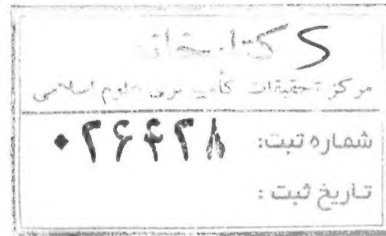 کتابخانه
مرکز تحقیقات کامپیوتری علوم اسلامی
شماره ثبت: ۰۲۶۴۲۸
تاریخ ثبت :